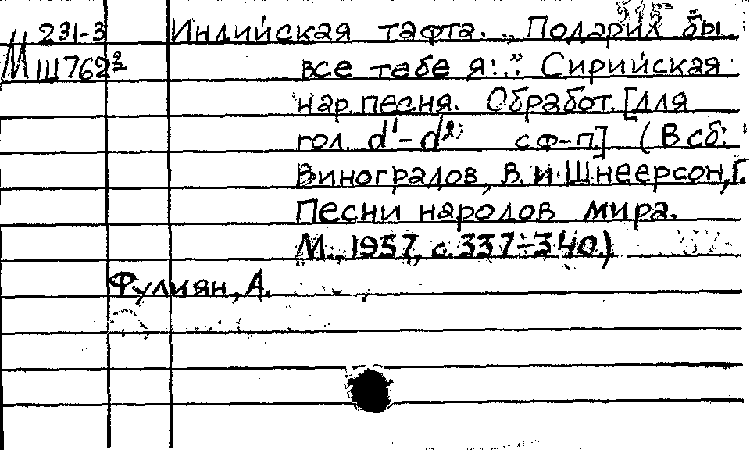 231-3 Индийская тафта. „Подарил бы
М Ш7622 все тебе я!..“ Сирийская
нар. песня. Обработ. [для
гол. d¹-d² с ф-п.] (В сб:
Виноградов, В. и Шнеерсон, Г.
Песни народов мира.
М., 1957, с. 337-340.)
Фулиян, А.